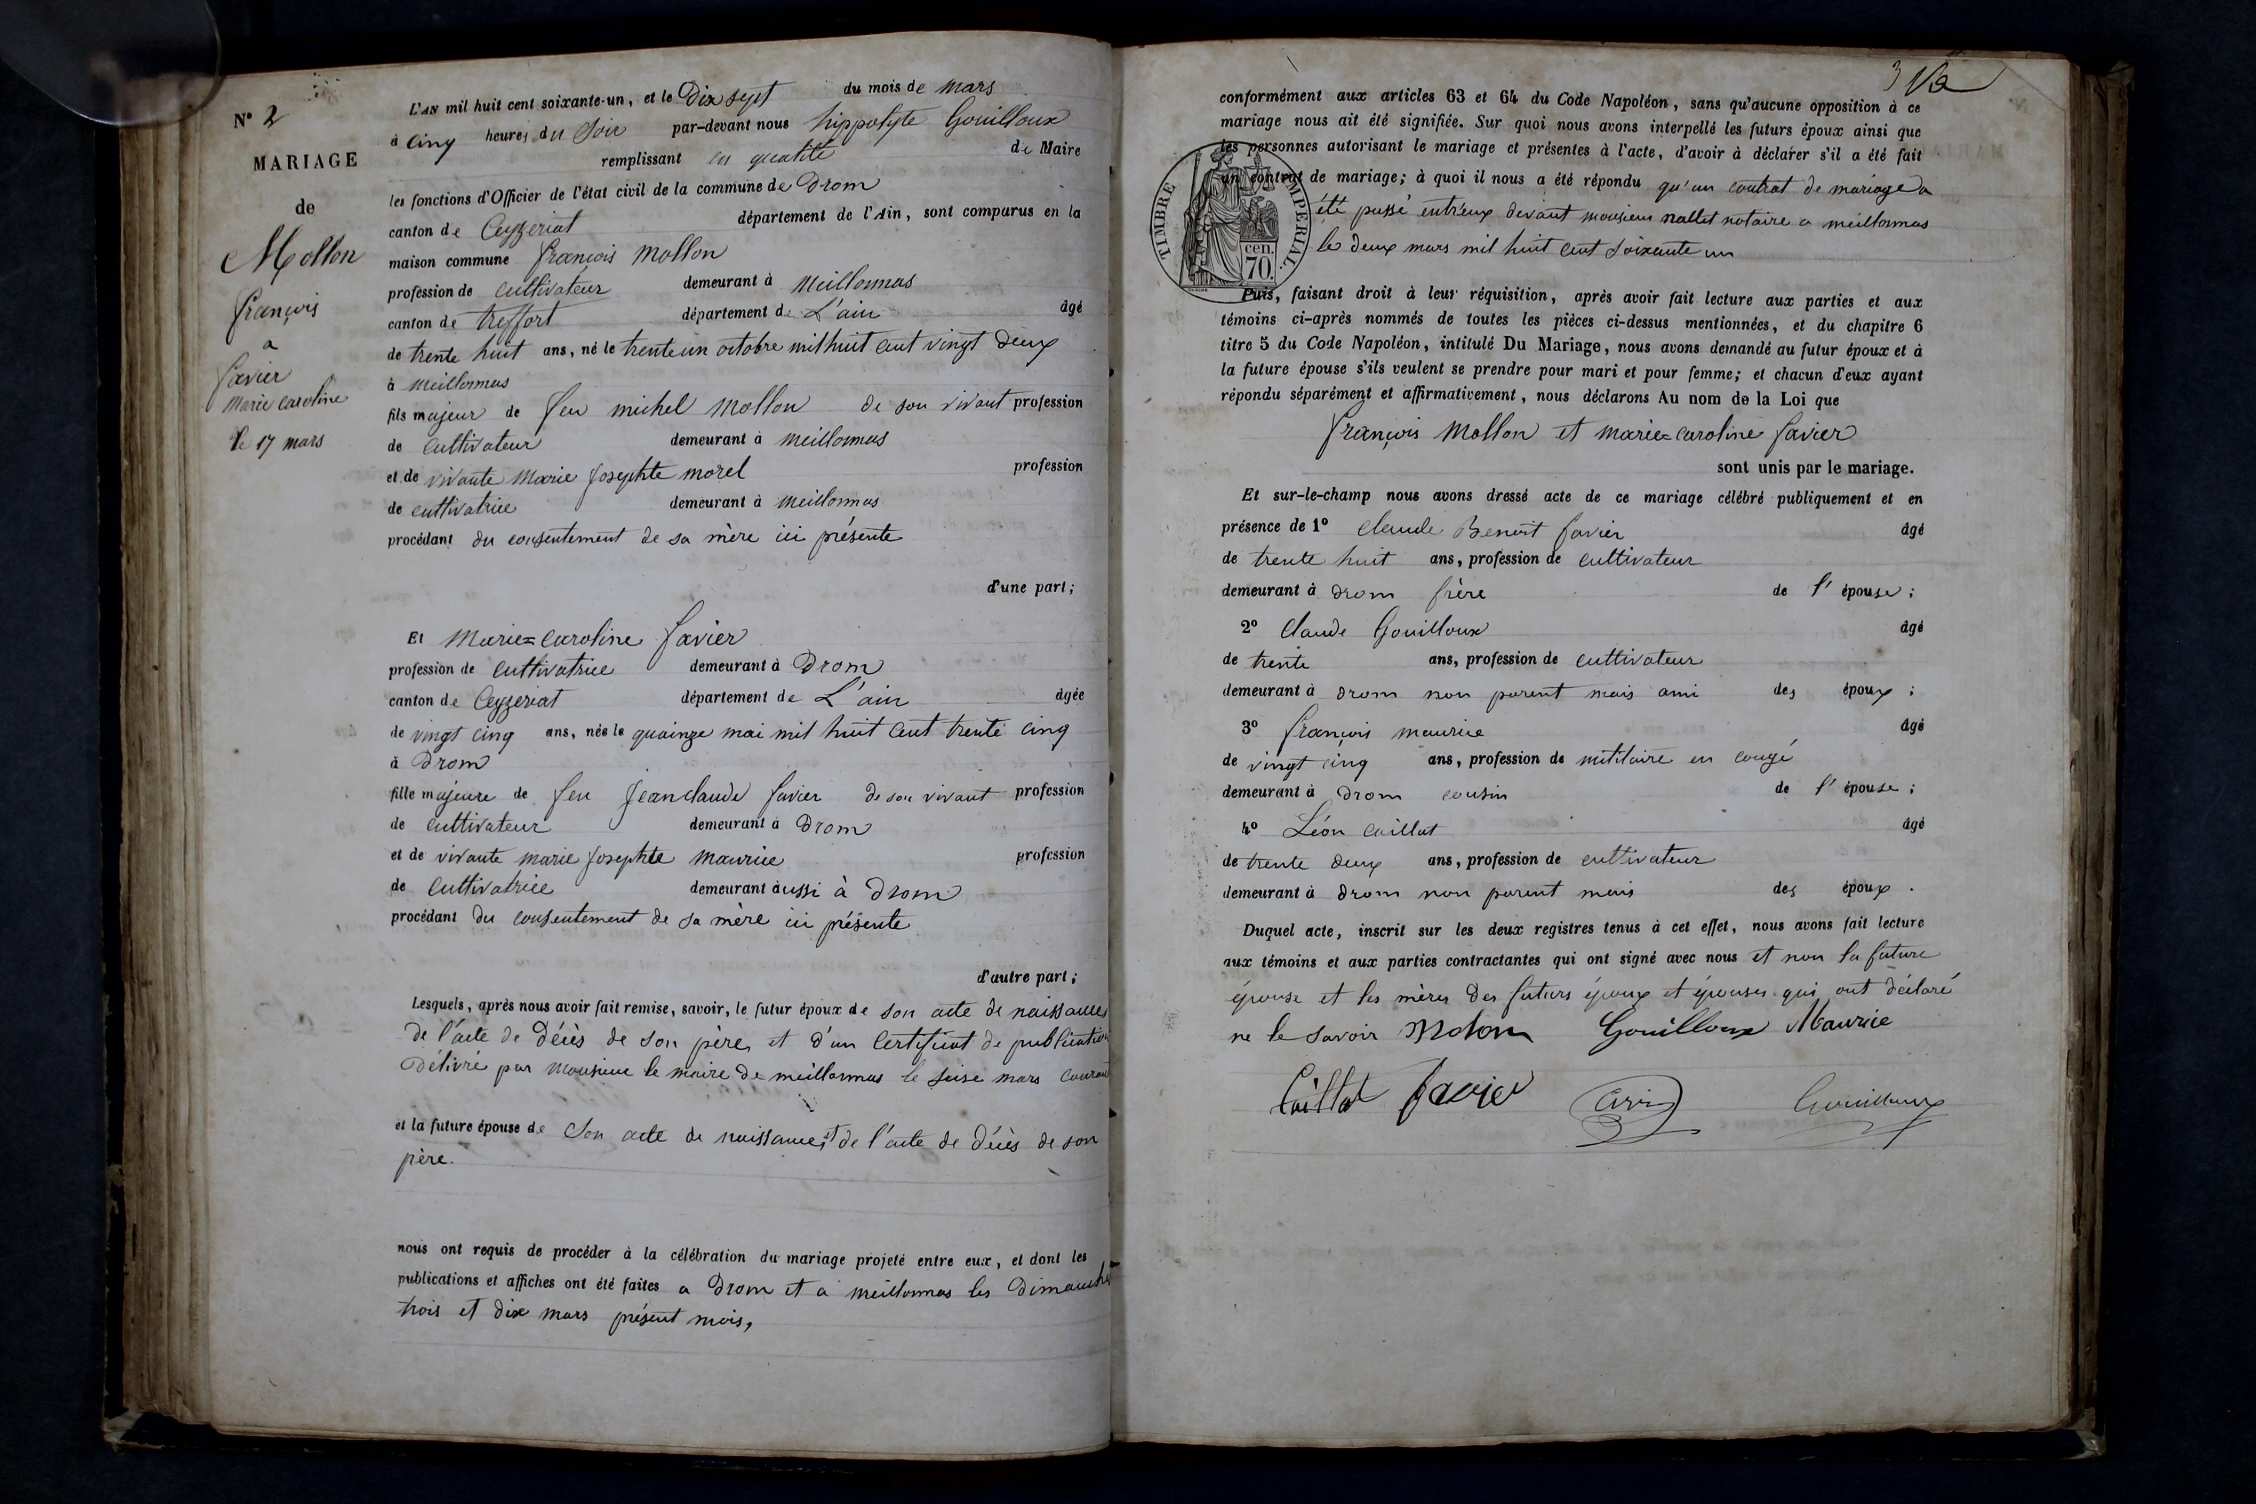 N° 2
MARIAGE
de
Mollon
françois
a
favier
marie caroline
le 17 mars
L'AN mil huit cent soixante-un, et le Dix sept du mois de mars
à cinq heures du soir par-devant nous hippolyte Gouilloux
remplissant en qualité de Maire
les fonctions d'Officier de l'état civil de la commune de Drom
canton de Ceyzeriat département de l'Ain, sont comparus en la
maison commune françois mollon
profession de cultivateur demeurant à meillonnas
canton de treffort département de L'ain âgé
de trente huit ans, né le trente un octobre mil huit cent vingt deux
à meillonnas
fils majeur de feu michel mollon de son vivant profession
de cultivateur demeurant à meillonnas
et de vivante marie josephte morel profession
de cultivatrice demeurant à meillonnas
procédant du consentement de sa mère ici présente
d'une part;
Et marie=caroline favier
profession de cultivatrice demeurant à Drom
canton de Ceyzeriat département de L'ain âgée
de vingt cinq ans, née le quainze mai mil huit cent trente cinq
à Drom
fille majeure de feu jean claude favier de son vivant profession
de cultivateur demeurant à Drom
et de vivante marie josephte maurice profession
de cultivatrice demeurant aussi à Drom
procédant du consentement de sa mère ici présente
d'autre part;
Lesquels, après nous avoir fait remise, savoir, le futur époux de son acte de naissance
de l'acte de décès de son père, et d'un certificat de publication
délivré par monsieur le maire de meillonnas le seise mars courant
et la future épouse de son acte de naissance, et de l'acte de décès de son
père.
nous ont requis de procéder à la célébration du mariage projeté entre eux, et dont les
publications et affiches ont été faites a Drom et a meillonnas les dimanches
trois et dix mars présent mois,
conformément aux articles 63 et 64 du Code Napoléon, sans qu'aucune opposition à ce
mariage nous ait été signifiée. Sur quoi nous avons interpellé les futurs époux ainsi que
les personnes autorisant le mariage et présentes à l'acte, d'avoir à déclarer s'il a été fait
un contrat de mariage; à quoi il nous a été répondu qu'un contrat de mariage a
été passé entr'eux devant monsieur nallet notaire a meillonnas
le deux mars mil huit cent soixante un
TIMBRE IMPERIAL.
cen.
70.
Puis, faisant droit à leur réquisition, après avoir fait lecture aux parties et aux
témoins ci-après nommés de toutes les pièces ci-dessus mentionnées, et du chapitre 6
titre 5 du Code Napoléon, intitulé Du Mariage, nous avons demandé au futur époux et à
la future épouse s'ils veulent se prendre pour mari et pour femme; et chacun d'eux ayant
répondu séparément et affirmativement, nous déclarons Au nom de la Loi que
françois mollon et marie=caroline favier
sont unis par le mariage.
Et sur-le-champ nous avons dressé acte de ce mariage célébré publiquement et en
présence de 1° claude Benoit favier âgé
de trente huit ans, profession de cultivateur
demeurant à drom frère de l'épouse;
2° claude Gouilloux âgé
de trente ans, profession de cultivateur
demeurant à drom non parent mais ami des époux;
3° françois maurice âgé
de vingt cinq ans, profession de militaire en congé
demeurant à Drom cousin de l'épouse;
4° Léon caillat âgé
de trente deux ans, profession de cultivateur
demeurant à drom non parent mais des époux.
Duquel acte, inscrit sur les deux registres tenus à cet effet, nous avons fait lecture
aux témoins et aux parties contractantes qui ont signé avec nous et non la future
épouse et les mères des futurs époux et épouses qui ont déclaré
ne le savoir Molon Gouilloux Maurice
Caillat favier Gouilloux